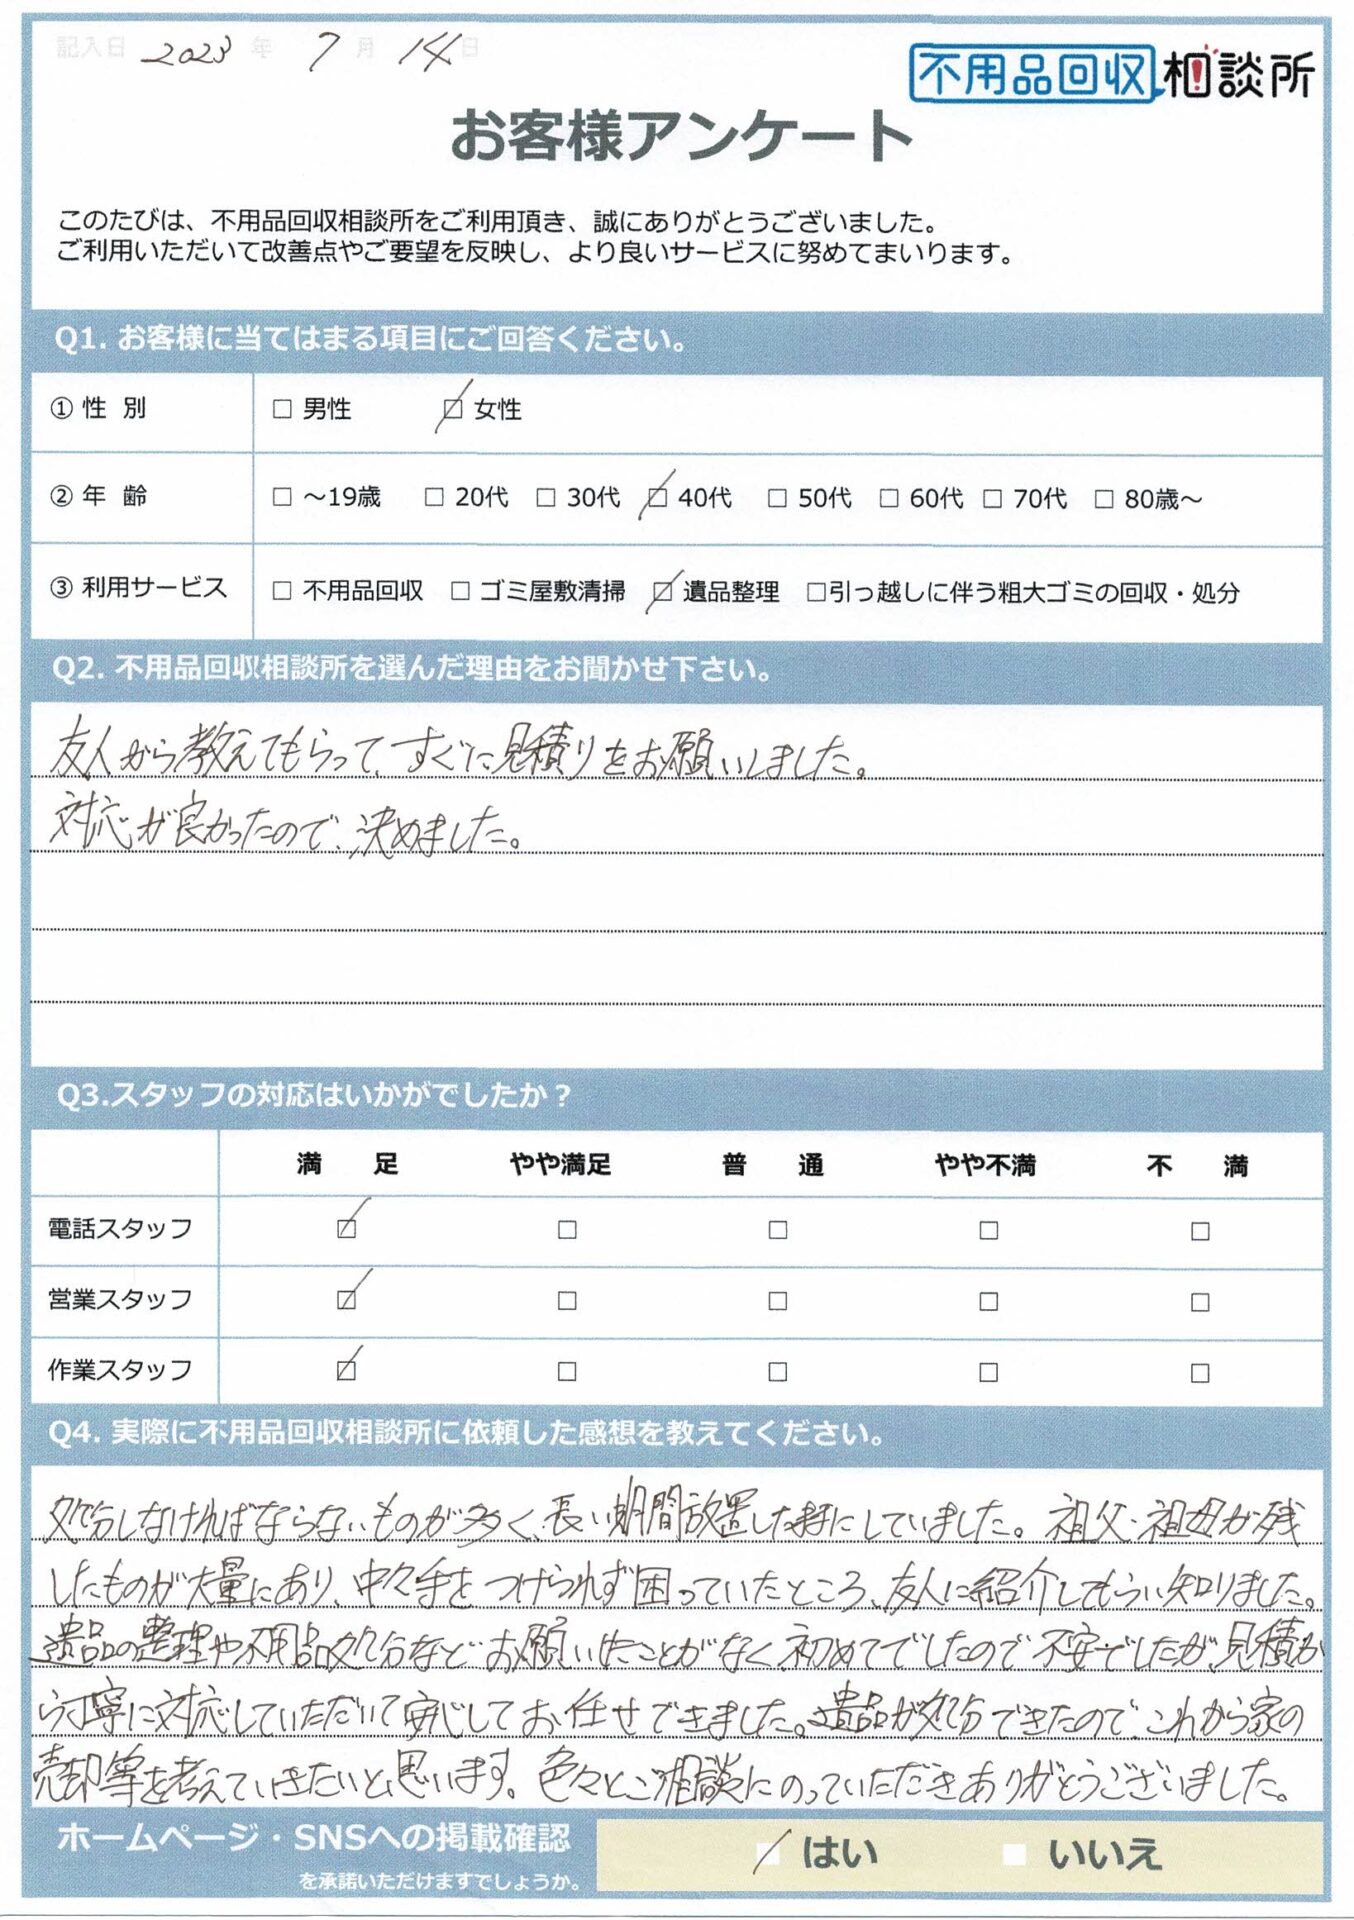 記入日 2023 年 7 月 14 日
不用品回収相談所
お客様アンケート
このたびは、不用品回収相談所をご利用頂き、誠にありがとうございました。
ご利用いただいて改善点やご要望を反映し、より良いサービスに努めてまいります。
Q1. お客様に当てはまる項目にご回答ください。
① 性 別 □ 男性 ☑ 女性
② 年 齢 □ ～19歳 □ 20代 □ 30代 ☑ 40代 □ 50代 □ 60代 □ 70代 □ 80歳～
③ 利用サービス □ 不用品回収 □ ゴミ屋敷清掃 ☑ 遺品整理 □引っ越しに伴う粗大ゴミの回収・処分
Q2. 不用品回収相談所を選んだ理由をお聞かせ下さい。
友人から教えてもらって、すぐに見積りをお願いしました。
対応が良かったので、決めました。
Q3.スタッフの対応はいかがでしたか？
満 足 やや満足 普 通 やや不満 不 満
電話スタッフ ☑ □ □ □ □
営業スタッフ ☑ □ □ □ □
作業スタッフ ☑ □ □ □ □
Q4. 実際に不用品回収相談所に依頼した感想を教えてください。
処分しなければならないものが多く、長い期間放置した様にしていました。祖父・祖母が残
したものが大量にあり、中々手をつけられず困っていたところ、友人に紹介してもらい知りました。
遺品の整理や不用品処分などお願いしたことがなく、初めてでしたので不安でしたが、見積か
ら丁寧に対応していただいて安心してお任せできました。遺品が処分できたので、これから家の
売却等を考えていきたいと思います。色々とご相談にのっていただきありがとうございました。
ホームページ・SNSへの掲載確認 ☑ はい □ いいえ
を承諾いただけますでしょうか。